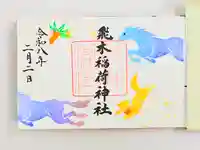 飛木稲荷神社
令和八年
二月二日